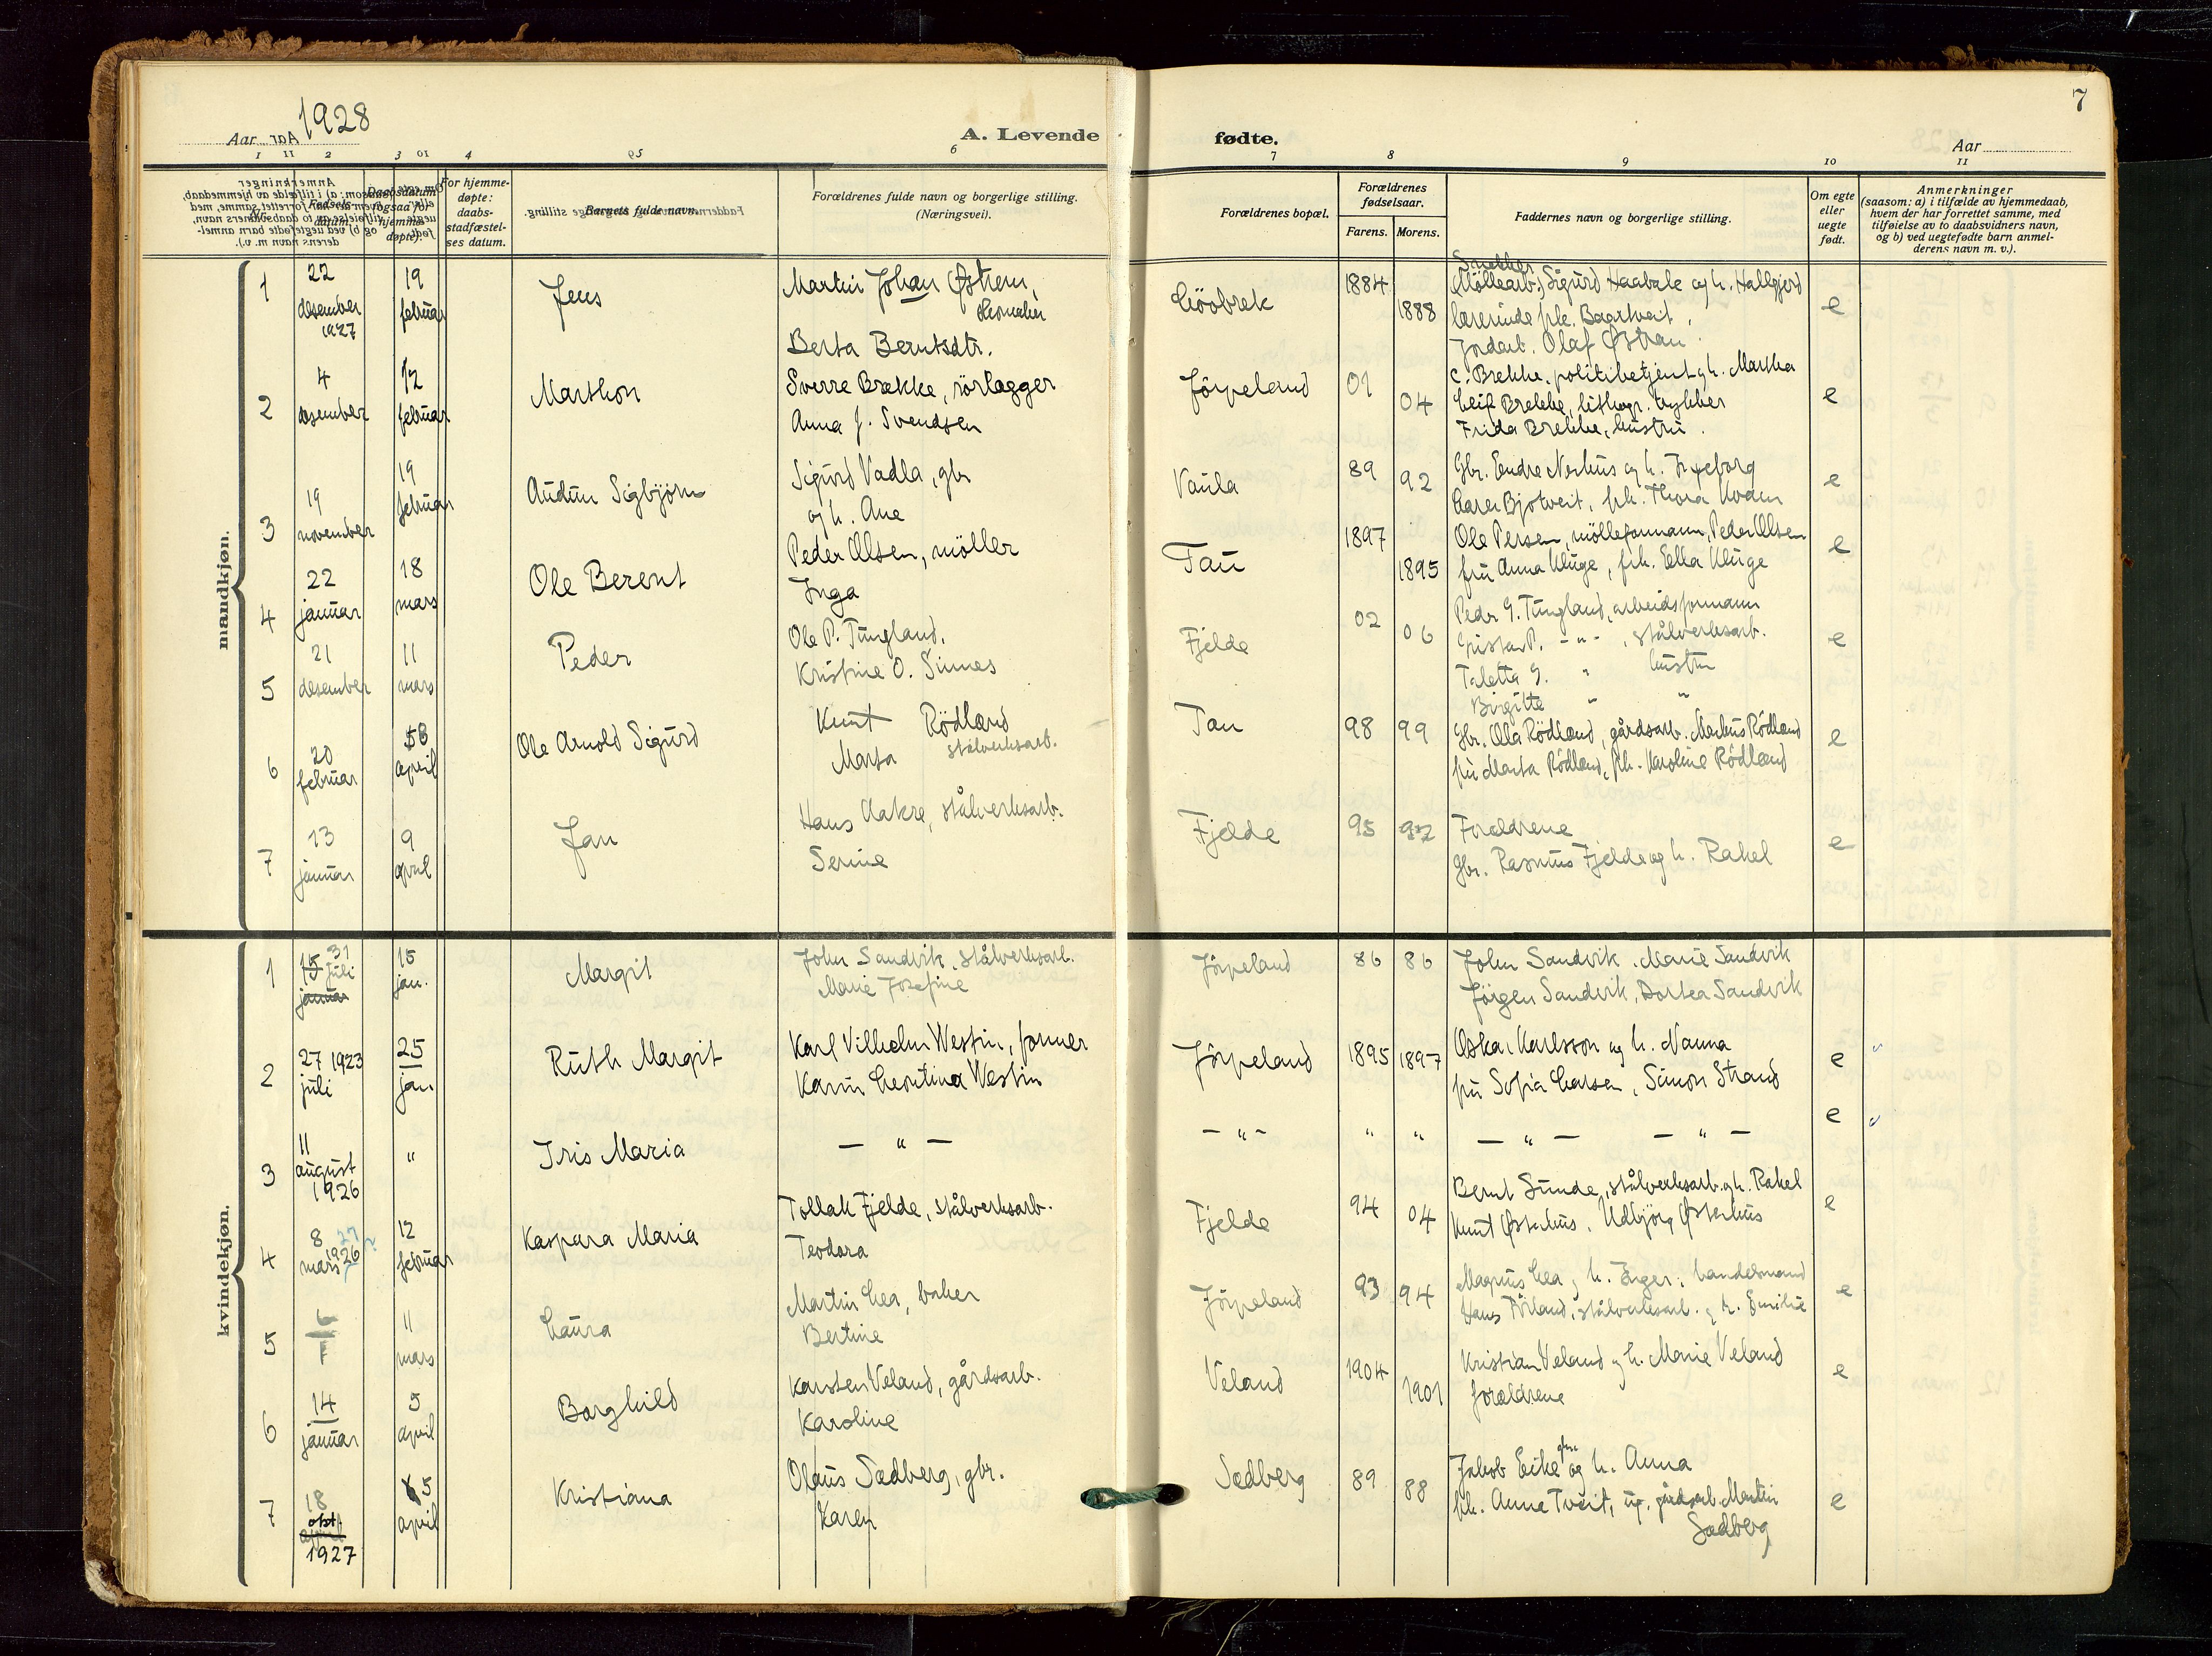 1928
Aar
A. Levende
fødte.
Aar
7
1 2 3 4 5 6 7 8 9 10 11
Fødsels-
datum.
For hjemme-
døpte:
daabs-
stadfæstel-
ses datum.
Barnets fulde navn.
Forældrenes fulde navn og borgerlige stilling.
(Næringsvei).
Forældrenes bopæl.
Forældrenes
fødselsaar.
Farens. Morens.
Faddernes navn og borgerlige stilling.
Om egte
eller
uegte
født.
Anmerkninger
(saasom: a) i tilfælde av hjemmedaab,
hvem der har forrettet samme, med
tilføielse av to daabsvidners navn,
og b) ved uegtefødte barn anmel-
derens navn m. v.).
mandkjøn.
1 22 desember 1927 19 februar Jens
Martin Johan Østrem,
Berta Berntsdtr.
1884 1888
Snekker
(Möllearb.) Sigurd Haabale og h. Hallgjerd
lærerinde frk. Baartveit,
Jordarb. Olaf Østran
e
2 4 desember 12 februar Marthon
Sverre Brekke, rörlegger
Anna J. Svendsen
Jörpeland 01 04
C. Brekke, politibetjent og h. Martha
Leif Brekke, lithogr. trykker
Frida Brekke, hustru.
e
3 19 november 19 februar Audun Sigbjörn
Sigurd Vadla, gbr
og h. Ane
Vaula 89 92
Gbr. Endre Nerhus og h. Ingeborg
Bjotveit, frk. Thora Kvam
e
4 22 januar 18 mars Ole Berent
Peder Olsen, möller
Inga
Tau 1897 1895
Ole Persen, mölleformann, Peder Olsen
fru Anna Kluge, frk. Ella Kluge
e
5 21 desember 11 mars Peder
Ole P. Tungland.
Kristine O. Sinnes
Fjelde 02 06
Peder G. Tungland, arbeidsformann
Kristian P. - " - , stålverksarb.
Taletta G. " hustru
Birgitte " "
e
6 20 februar 8 april Ole Arnold Sigurd
Knut Rödland
Marta stålverksarb.
Tau 98 99
Gbr. Ola Rödland, gårdsarb. Markus Rödland
fru Marta Rödland, frk. Karoline Rödland
e
7 13 januar 9 april Jan
Hans Aakre, stålverksarb.
Serine
Fjelde 95 92
Foreldrene
Gbr. Rasmus Fjelde og h. Rakel
e
kvindekjøn.
1 15 januar 31 juli 15 jan. Margit
John Sandvik, stålverksarb.
Marie Josefine
Jörpeland 86 86
John Sandvik, Marie Sandvik
Jörgen Sandvik, Dortea Sandvik
2 27 juli 1923 25 jan Ruth Margit
Karl Vilhelm Westin, former
Karin Leontina Westin
Jörpeland 1895 1897
Oskar Karlsson og h. Nanna
fru Sofia Larsen, Simon Strand
e "
3 11 august 1926 " Iris Maria
— " —
- " - " "
— " — — " —
e "
4 8 mars 1926 27 ? 12 februar Kaspara Maria
Tollak Fjelde, stålverksarb.
Teodora
Fjelde 94 04
Bernt Sunde, stålverksarb. og h. Rakel
Knut Østerhus, Udbjörg Østerhus
e
5 11 mars Laura
Martin Lea, baker
Bertine
Jörpeland 93 94
Magnus Lea og h. Inger, handelsmand
Hans Pörland, stålverksarb. og h. Emilie
e
6 14 januar 5 april Borghild
Karsten Veland, gårdsarb.
Karoline
Veland 1904 1901
Kristian Veland og h. Marie Veland
foreldrene
e
7 18 okt. 1927 5 april Kristiana
Olaus Sedberg, gbr.
Karen
Sedberg 89 88
Jakob Eike gbr. og h. Anna
frk. Anna Tveit, ug. gårdsarb. Martin
Sedberg
e